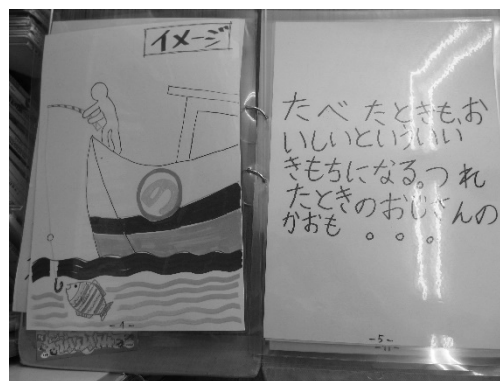 イメージ
-4-
たべたときも、お
いしいといういい
きもちになる。つれ
たときのおじさんの
かおも。。。
-5-